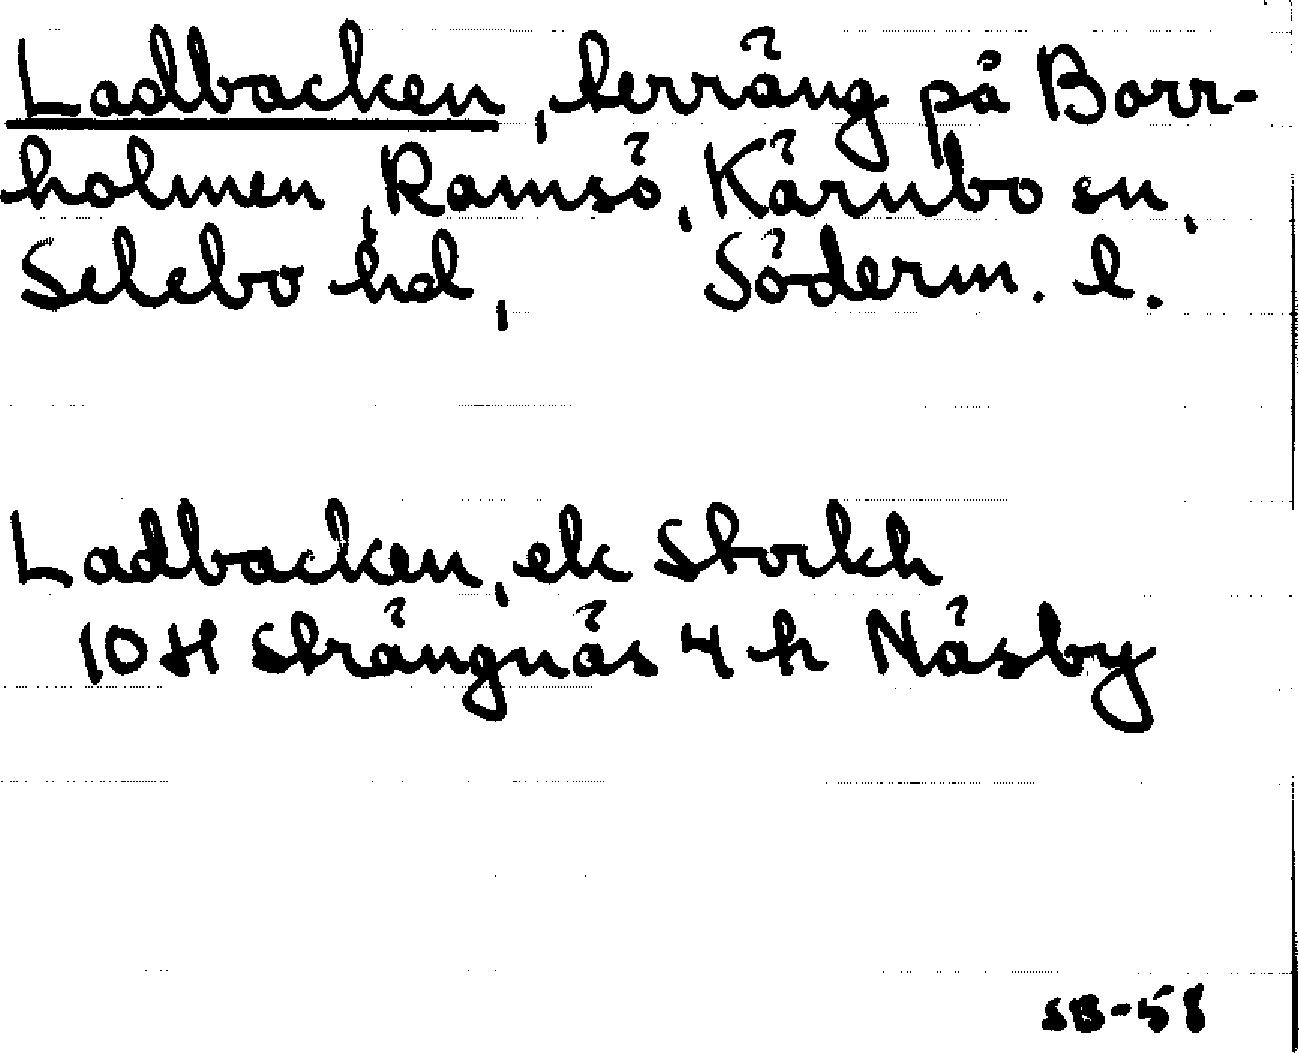 Ladbacken, terräng på Borr-
holmen, Ramsö, Kärnbo sn,
Selebo hd, Söderm. l.
Ladbacken, ek Stockh
10 H Strängnäs 4 h Näsby
SB-58